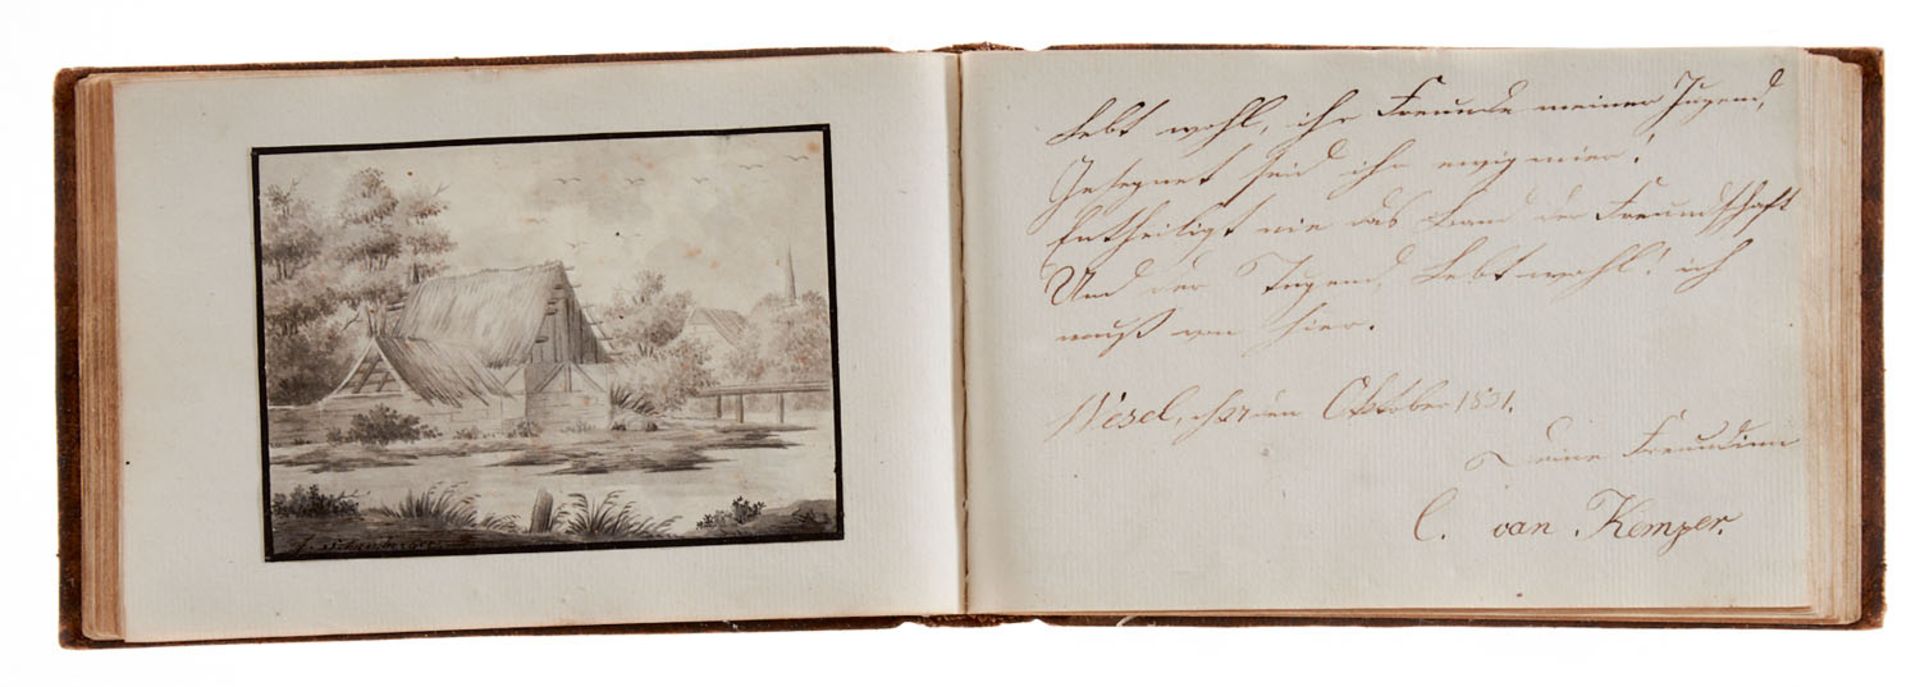 Lebt wohl, ihr Freunde meiner Jugend,
Gesegnet seid ihr ewig mier!
Entheiligt nie das Band der Freundschaft
Und der Tugend, Lebt wohl! ich
muß von hier.
Wesel, den Oktober 1831.
Deine Freundinn
C. van Kemper.